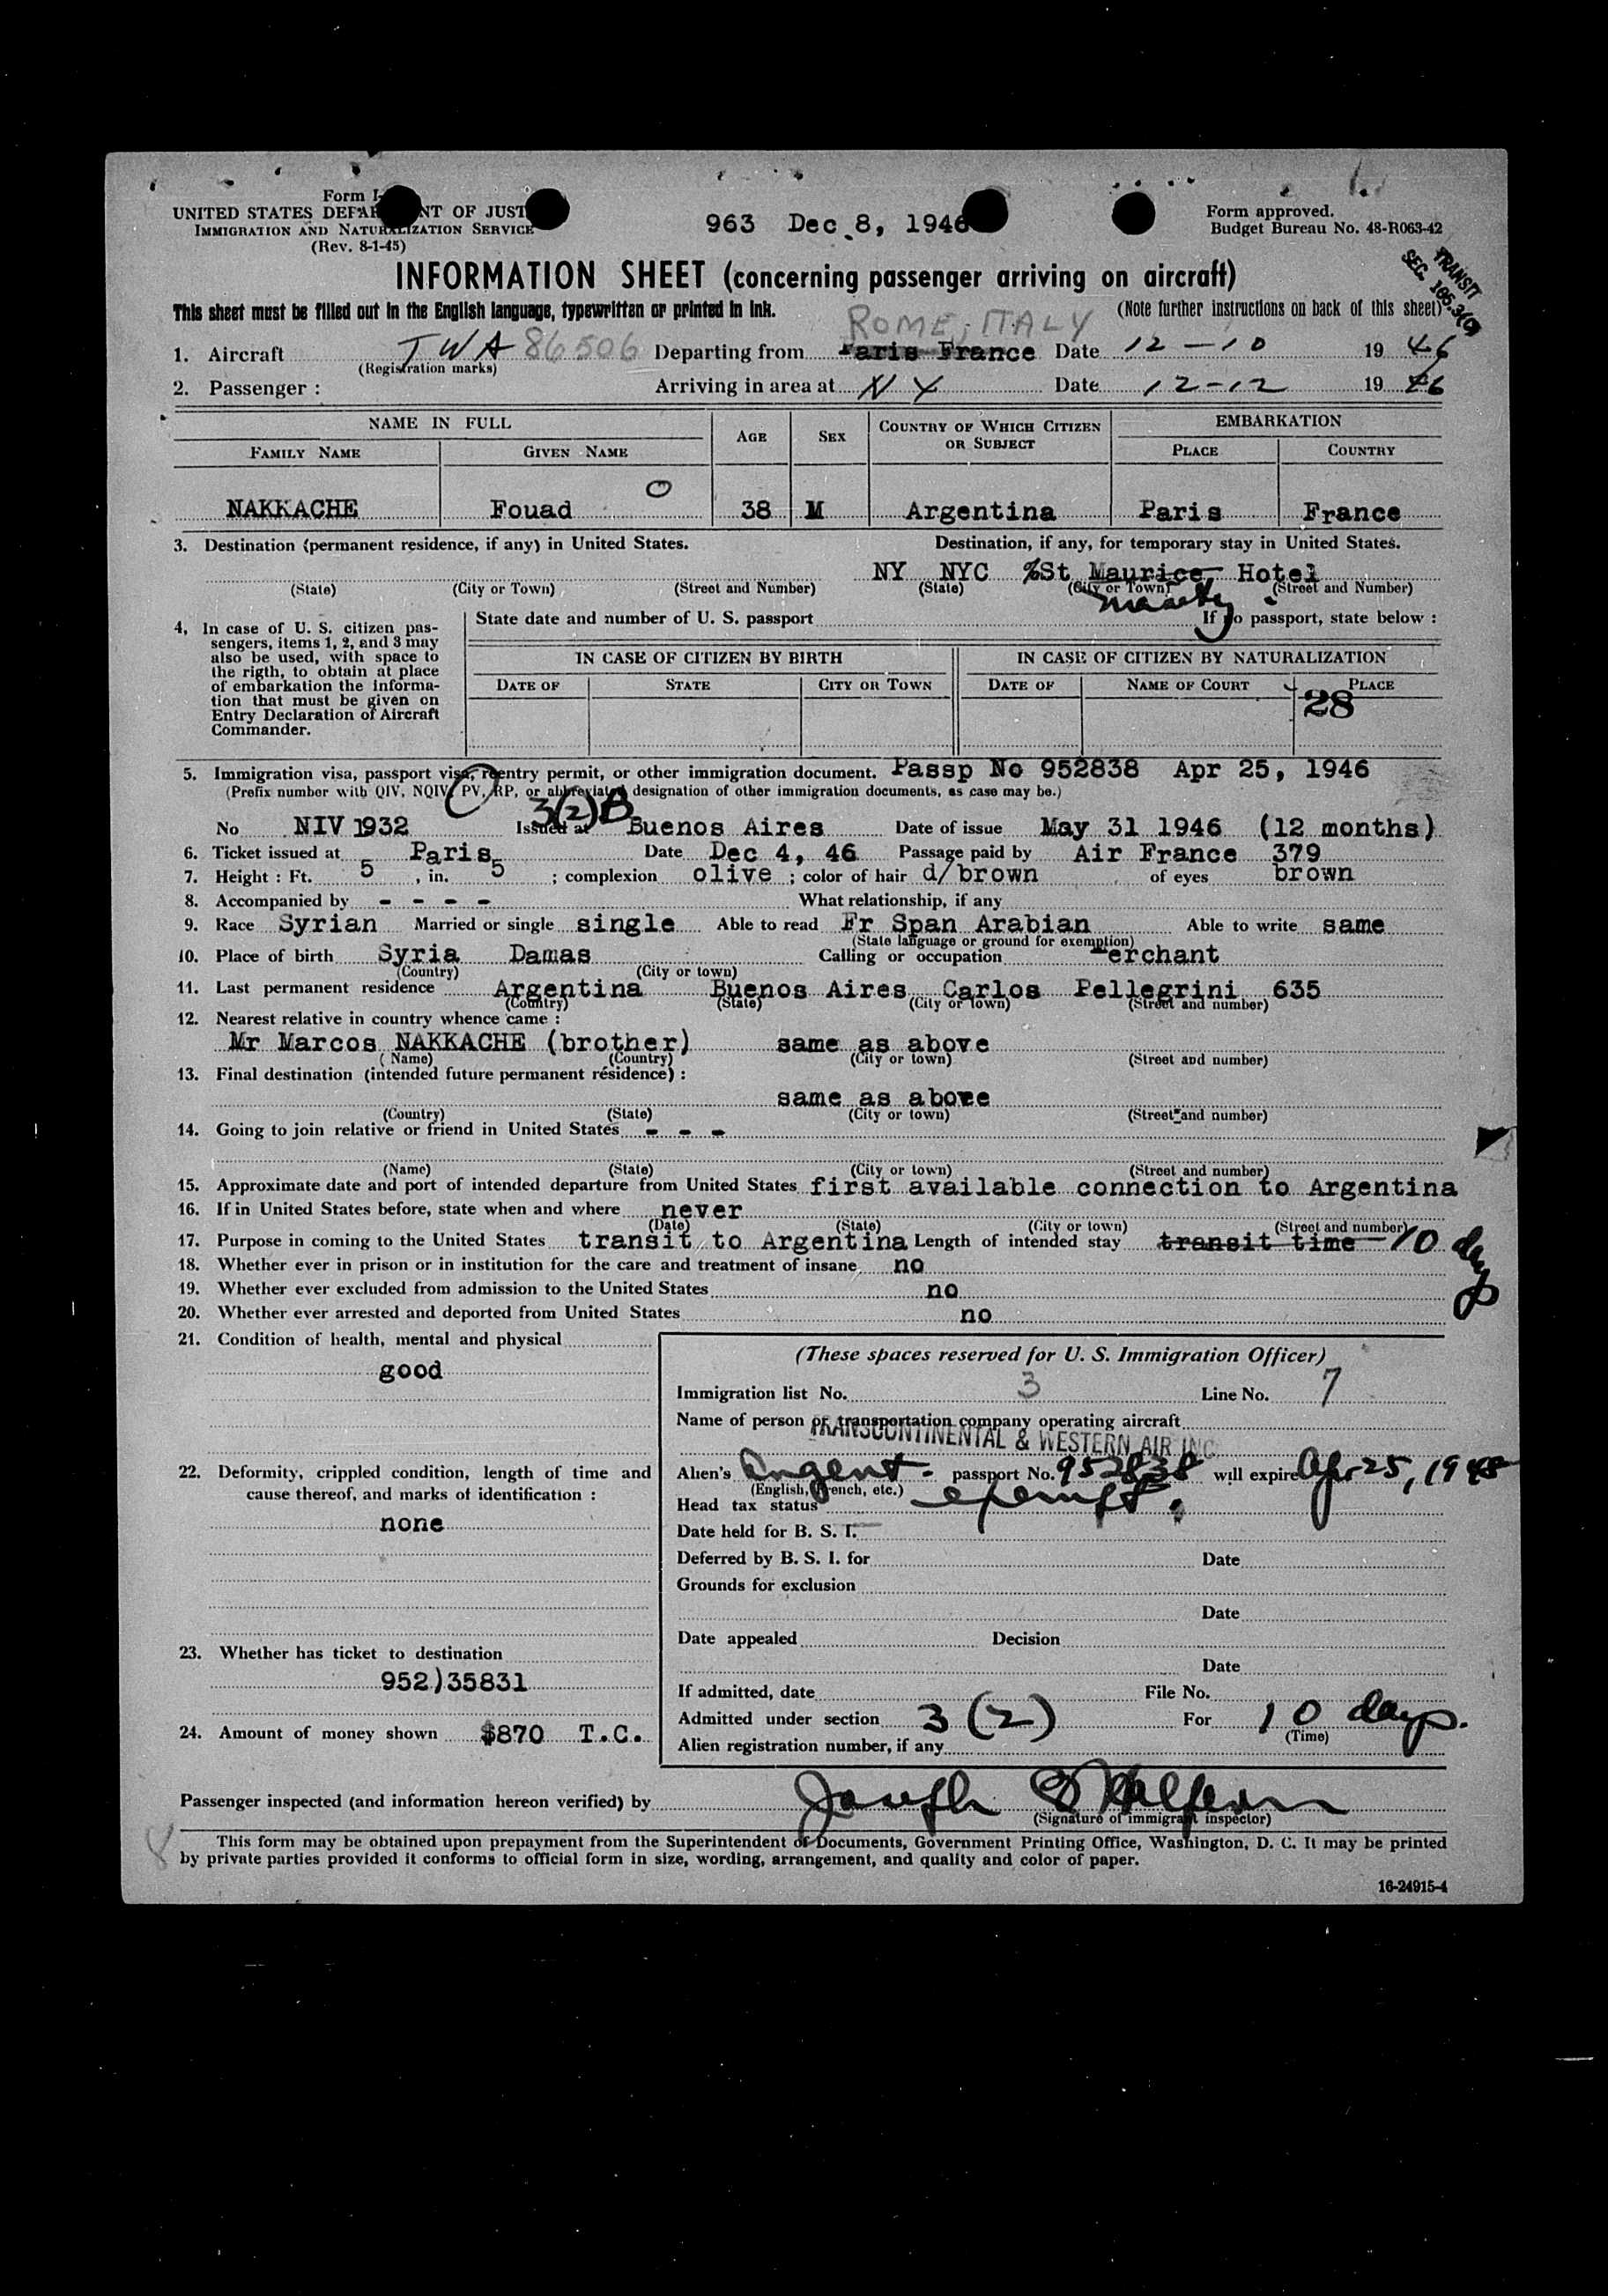 Form I-
UNITED STATES DEPAR NT OF JUST
IMMIGRATION AND NATURALIZATION SERVICE
(Rev. 8-1-45)
963 Dec 8, 1946
Form approved.
Budget Bureau No. 48-R063-42
TRANSIT
SEC. 165.3(
INFORMATION SHEET (concerning passenger arriving on aircraft)
This sheet must be filled out in the English language, typewritten or printed in ink. (Note further instructions on back of this sheet)
ROME, ITALY
1. Aircraft TWA 86506 Departing from Paris France Date 12-10 19 46
(Registration marks)
2. Passenger : Arriving in area at NY Date 12-12 19 46
NAME IN FULL AGE SEX COUNTRY OF WHICH CITIZEN OR SUBJECT EMBARKATION
FAMILY NAME GIVEN NAME PLACE COUNTRY
NAKKACHE Fouad 38 M Argentina Paris France
3. Destination (permanent residence, if any) in United States. Destination, if any, for temporary stay in United States.
NY NYC %St Maurice Hotel
(State) (City or Town) (Street and Number) (State) (City or Town) (Street and Number)
4, In case of U. S. citizen pas-
sengers, items 1, 2, and 3 may
also be used, with space to
the rigth, to obtain at place
of embarkation the informa-
tion that must be given on
Entry Declaration of Aircraft
Commander.
State date and number of U. S. passport If no passport, state below :
IN CASE OF CITIZEN BY BIRTH IN CASE OF CITIZEN BY NATURALIZATION
DATE OF STATE CITY OR TOWN DATE OF NAME OF COURT PLACE
28
5. Immigration visa, passport visa, reentry permit, or other immigration document. Passp No 952838 Apr 25, 1946
(Prefix number with QIV, NQIV, PV, RP, or abbreviated designation of other immigration documents, as case may be.)
3(2)B
No NIV 1932 Issued at Buenos Aires Date of issue May 31 1946 (12 months)
6. Ticket issued at Paris Date Dec 4, 46 Passage paid by Air France 379
7. Height : Ft. 5 , in. 5 ; complexion olive ; color of hair d/brown of eyes brown
8. Accompanied by - - - - What relationship, if any
9. Race Syrian Married or single single Able to read Fr Span Arabian Able to write same
(State language or ground for exemption)
10. Place of birth Syria Damas Calling or occupation Merchant
(Country) (City or town)
11. Last permanent residence Argentina Buenos Aires Carlos Pellegrini 635
(Country) (State) (City or town) (Street and number)
12. Nearest relative in country whence came :
Mr Marcos NAKKACHE (brother) same as above
( Name) (Country) (City or town) (Street and number)
13. Final destination (intended future permanent résidence) :
same as above
(Country) (State) (City or town) (Street and number)
14. Going to join relative or friend in United States - - -
(Name) (State) (City or town) (Street and number)
15. Approximate date and port of intended departure from United States first available connection to Argentina
16. If in United States before, state when and where never
(Date) (State) (City or town) (Street and number)
17. Purpose in coming to the United States transit to Argentina Length of intended stay transit time 10 days
18. Whether ever in prison or in institution for the care and treatment of insane no
19. Whether ever excluded from admission to the United States no
20. Whether ever arrested and deported from United States no
21. Condition of health, mental and physical
good
22. Deformity, crippled condition, length of time and
cause thereof, and marks of identification :
none
23. Whether has ticket to destination
952)35831
24. Amount of money shown $870 T.C.
(These spaces reserved for U. S. Immigration Officer)
Immigration list No. 3 Line No. 7
Name of person or transportation company operating aircraft
TRANSCONTINENTAL & WESTERN AIR INC
Alien's Argent. passport No. 952838 will expire Apr 25, 1948
(English, French, etc.)
Head tax status exempt.
Date held for B. S. I.
Deferred by B. S. I. for Date
Grounds for exclusion
Date
Date appealed Decision
Date
If admitted, date File No.
Admitted under section 3(2) For 10 days.
(Time)
Alien registration number, if any
Passenger inspected (and information hereon verified) by Joseph S Halpern
(Signature of immigrant inspector)
8
This form may be obtained upon prepayment from the Superintendent of Documents, Government Printing Office, Washington, D. C. It may be printed
by private parties provided it conforms to official form in size, wording, arrangement, and quality and color of paper.
16-24915-4